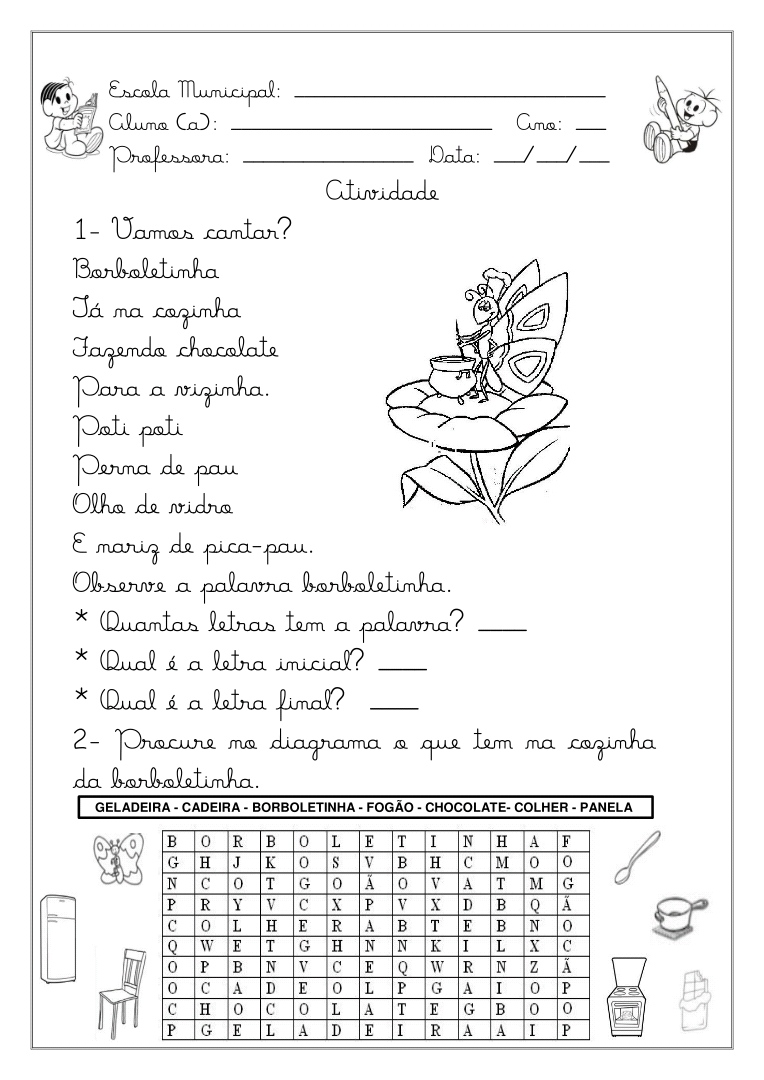 Escola Municipal: ____________________
Aluno (a): ____________________ Ano: ___
Professora: ______________ Data: __/__/__
Atividade
1- Vamos cantar?
Borboletinha
Tá na cozinha
Fazendo chocolate
Para a vizinha.
Poti poti
Perna de pau
Olho de vidro
E nariz de pica-pau.
Observe a palavra borboletinha.
* Quantas letras tem a palavra? ____
* Qual é a letra inicial? ____
* Qual é a letra final? ____
2- Procure no diagrama o que tem na cozinha
da borboletinha.
GELADEIRA - CADEIRA - BORBOLETINHA - FOGÃO - CHOCOLATE- COLHER - PANELA
B O R B O L E T I N H A F
G H J K O S V B H C M O O
N C O T G O Ã O V A T M G
P R Y V C X P V X D B Q Ã
C O L H E R A B T E B N O
Q W E T G H N N K I L X C
O P B N V C E Q W R N Z Ã
O C A D E O L P G A I O P
C H O C O L A T E G B O O
P G E L A D E I R A A I P